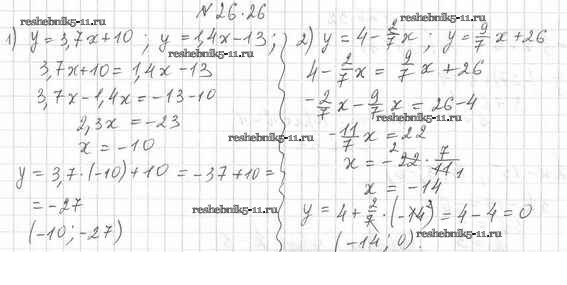 № 26.26
reshebnik5-11.ru
reshebnik5-11.ru
1) y = 3,7x + 10 ; y = 1,4x - 13 ;
reshebnik5-11.ru
3,7x + 10 = 1,4x - 13
3,7x - 1,4x = -13 - 10
2,3x = -23
x = -10
y = 3,7 · (-10) + 10 = -37 + 10 =
= -27
(-10; -27)
2) y = 4 - 2/7 x ; y = 9/7 x + 26
4 - 2/7 x = 9/7 x + 26
-2/7 x - 9/7 x = 26 - 4
reshebnik5-11.ru
-11/7 x = 22
reshebnik5-11.ru
x = -22 · 7/11
x = -14
reshebnik5-11.ru
y = 4 + 2/7 · (-14) = 4 - 4 = 0
(-14; 0).
reshebnik5-11.ru